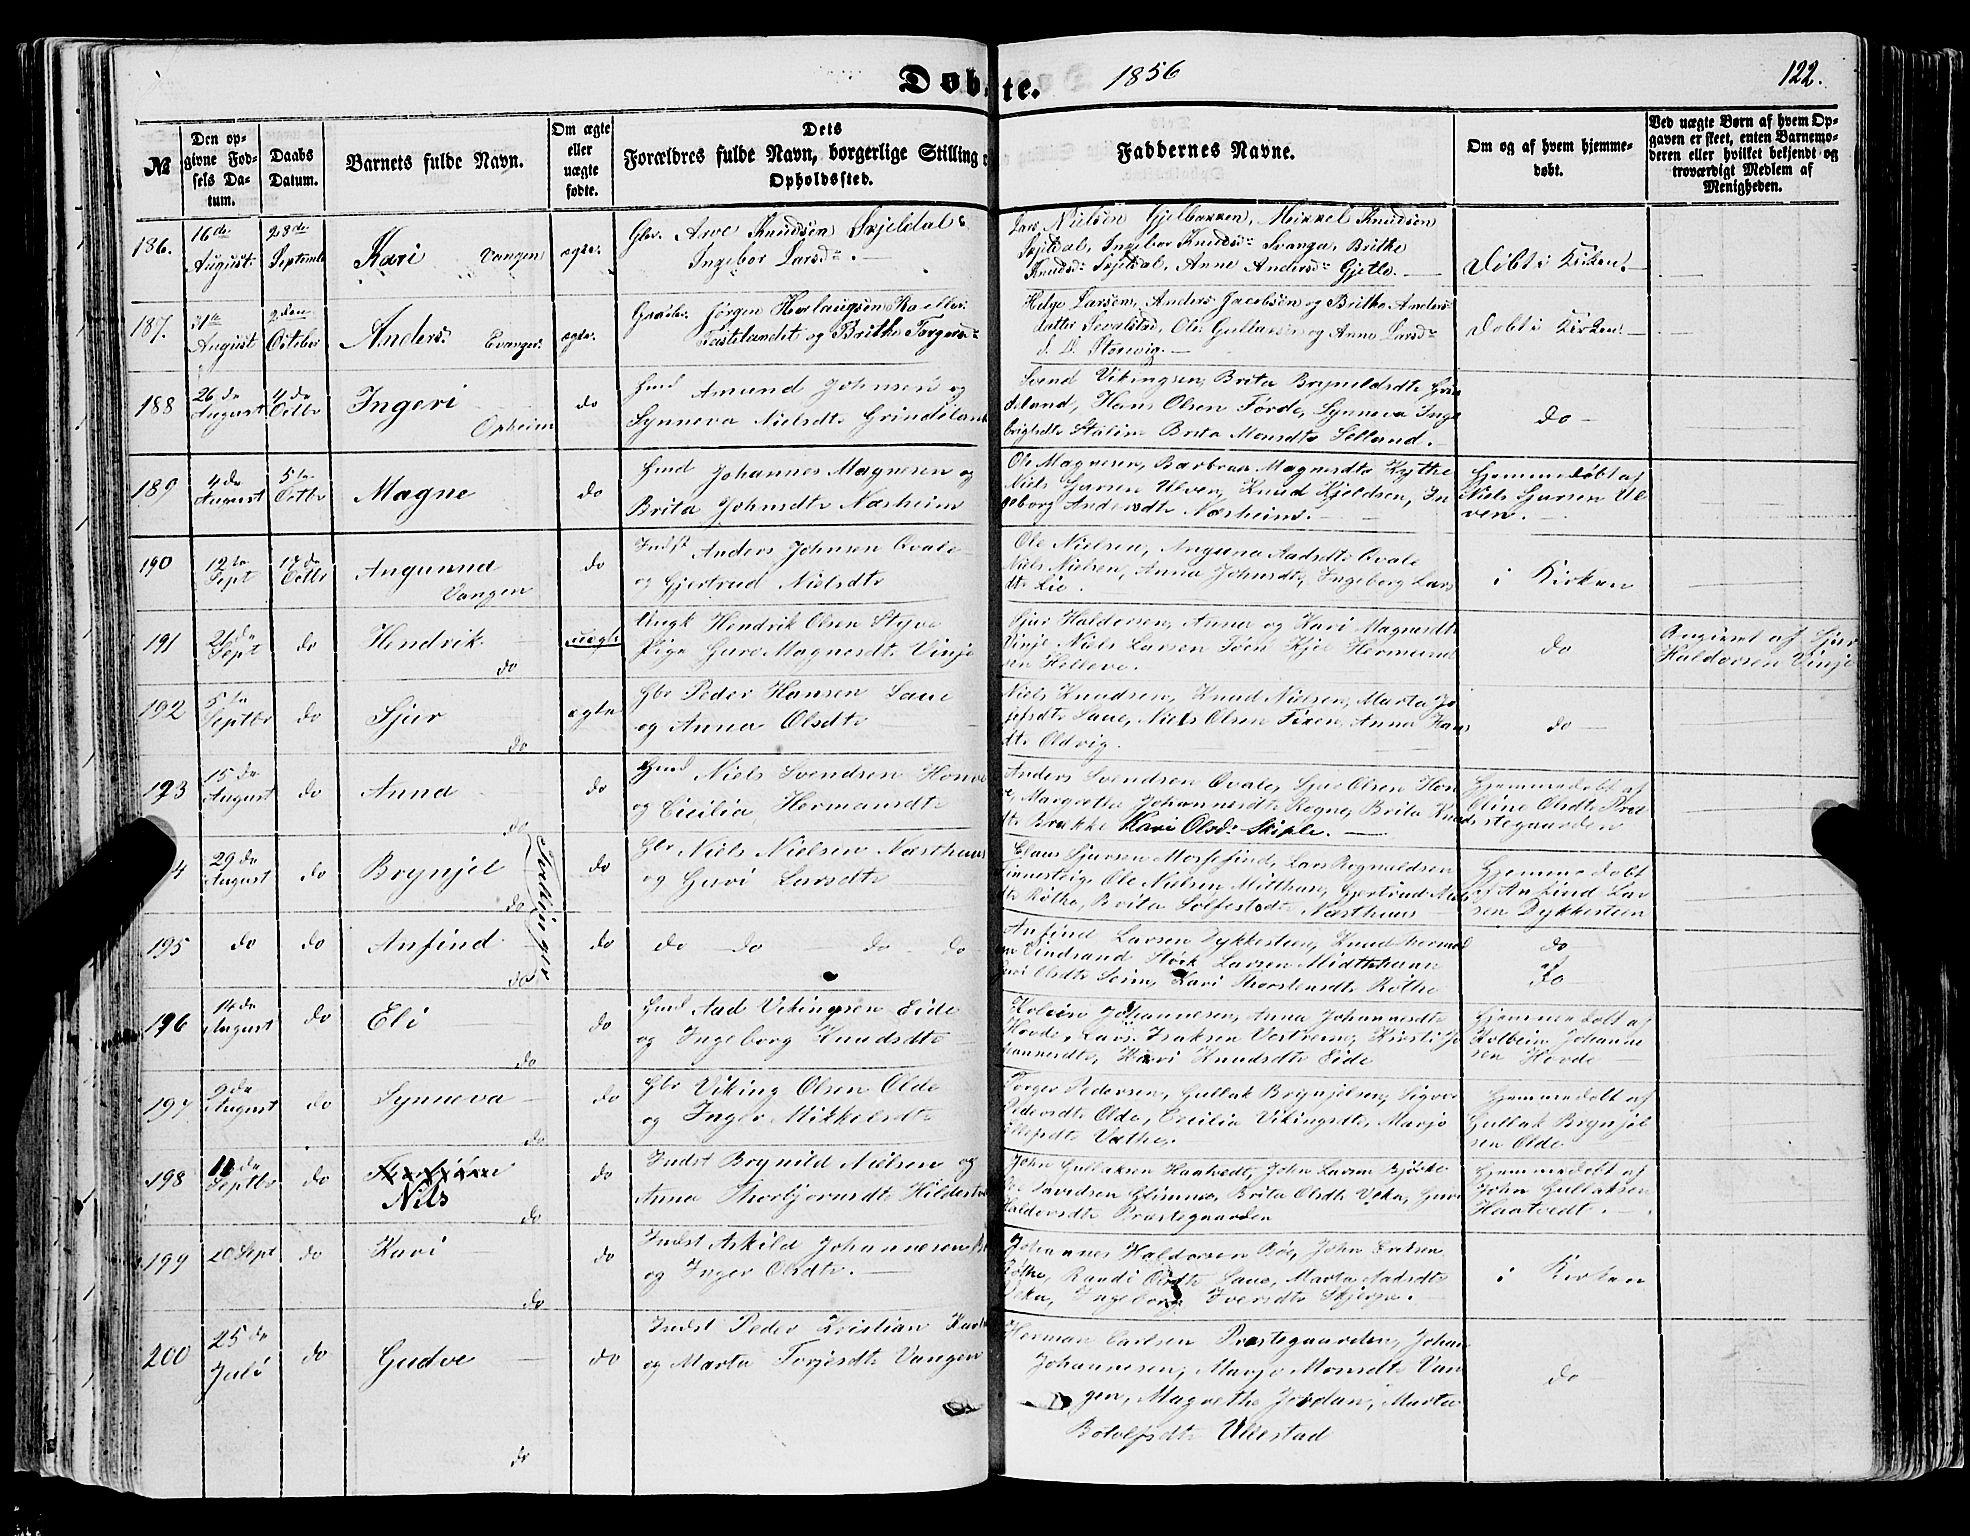 Døbte. 1856 122.
№
Den opgivne Fødsels Datum.
Daabs Datum.
Barnets fulde Navn.
Om ægte eller uægte fødte.
Dets Forældres fulde Navn, borgerlige Stilling o
Opholdssted.
Faddernes Navne.
Om og af hvem hjemmedøbt.
Ved uægte Børn af hvem Opgaven er skeet, enten Barnemoderen eller hvilket bekjendt og troværdigt Medlem af Menigheden.
186. 16de August 28de Septembr Kari Vangen ægte.
Gbr. Arve Knudsen Skjeldal &
Ingebor Larsdr.
Lars Nielsen Gjelbakken, Mikkel Knudsen
Skjeldal, Ingebor Knudsdr Svanga, Britha
Knudsdr Skjeldal, Anne Andersdr Gjetle.
Døbt i Kirken.
187. 31te August 2den October Anders Evanger ægte.
Jørgen Herlaugsen
og Britha Torgersdr
Helge Larsen, Anders Jacobsen og Britha Andersdatter
og Anna Larsdr
Storevig.
Døbt i Kirken.
188 26de August 4de Octbr Ingeri Opheim do
Gmd Amund Johnsen og
Synneva Nielsdtr Grindeland
Svend Vikingsen, Brita Brynildsdtr Grin
deland, Hans Olsen Førde, Synneva Inge
brigtsdtr Stalim Brita Monsdtr Selland.
do
189 4de August 5te Octbr Magne do
Gmd Johannes Magnesen og
Brita Johnsdtr Næsheim
Ole Magnesen, Barbraa Magnesdtr Kythe
Niels Sjursen Ulven, Knud Kjeldsen, In
geborg Andersdtr Næsheim.
Hjemmedøbt af
Niels Sjursen Ul
ven.
190 12te Sept 17de Octbr Angunna Vangen do
Indst Anders Johnsen Qvale
og Gjertrud Nielsdtr
Ole Nielsen, Anguna Aadsdtr Qvale
Niels Nielsen, Anna Johnsdtr, Ingeborg Lars
dtr Lie.
i Kirken
191 21de Sept do Hendrik do uægte
Ungk Hendrik Olsen Styve
Pige Guro Magnesdtr Vinje
Sjur Haldorsen, Anna og Kari Magnesdtr
Vinje Niels Larsen Tøen Kjel Hermund
sen Helleve.
do
Angivet af Sjur
Haldorsen Vinje
192 5te Septbr do Sjur do ægte
Gbr Peder Hansen Saue
og Anna Olsdtr
Niels Knudsen, Knud Nielsen, Marta Jo
sefsdtr Saue, Niels Olsen Finne, Anna Hans
dtr Oldvig.
do
193 15de August do Anna do do
Gmd Niels Svendsen Honve
og Cicilia Hermansdtr
Anders Svendsen Qvale, Sjur Olsen Hon
ve, Margretha Johannesdtr Rogne, Brita Knuds
dtr Brække Kari Olsd: Skiple.
Hjemmedøbt af
Oline Olsdtr Præ
stegaarden
4 29de August do Brynjel do do
Tvillinger
Gbr Niels Nielsen Næsthuus
og Guri Larsdtr
Claus Sjursen Mossefind, Lars Rognaldsen
Finnesteig Ole Nielsen Mitthun, Gjertrud Niels
dtr Røthe, Brita Solfestdtr Næsthuus
Hjemmedøbt
af Anfind Lar
sen Dykkesteen
195 do do Anfind do do
do do do do
Anfind Larsen Dykkesteen, Knud Hermod
sen Lindsand Størk Larsen Midthuun
Guri Olsdtr Seim, Kari Thorstensdtr Røthe
do
af
do
196 14de August do Eli do do
Gmd Aad Vikingsen Eide
og Ingeborg Knudsdtr
Kolbein Johannesen, Anna Johannesdtr
Hovde, Lars Isaksen Vestrem, Kirsti Jo
hannesdtr, Kari Knudsdtr Eide
Hjemmedøbt af
Kolbein Johanne
sen Hovde
197 9de August do Synneva do do
Gbr Viking Olsen Olde
og Inger Mikkelsdtr
Torger Pedersen, Gullak Brynjelsen, Sigve
Pedersdtr Olde, Cecilia Vikingsdtr, Marjo
Ellefsdtr Vathe.
Hjemmedøbt af
Gullak Brynjel
sen Olde
198 11de Septbr do Nils do do
Indst Brynild Nielsen og
Anna Thorbjørnsdtr Hildestvedt
John Gullaksen Haatvedt, John Larsen Bjørke
Davidsen Glimme, Brita Olsdtr Veka, Guro
Haldorsdtr Præstegaarden
Hjemmedøbt af
John Gullaksen
Haatvedt.
199 20 Sept do Kari do do
Indst Askild Johannesen Bø
og Inger Olsdtr.
Johannes Haldorsen Bø, John Eriksen
Røthe, Randi Olsdtr Saue, Marta Aadsdtr
Veka, Ingeborg Iversdtr Skjerpe.
i Kirken
200 25de Juli do Gudve do do
Indst Peder Kristian
og Marta Torjesdtr Vangen
Herman Carlsen Præstegaarden, Johan
Johannesen, Marjo Monsdtr Van
gen, Magrethe Jordan, Marta
Botolfsdtr Ullestad
do